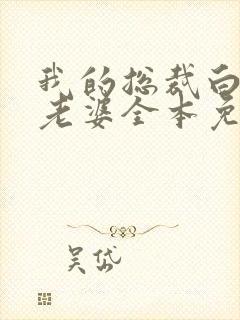 我的总裁白
老婆全本免
吴岱